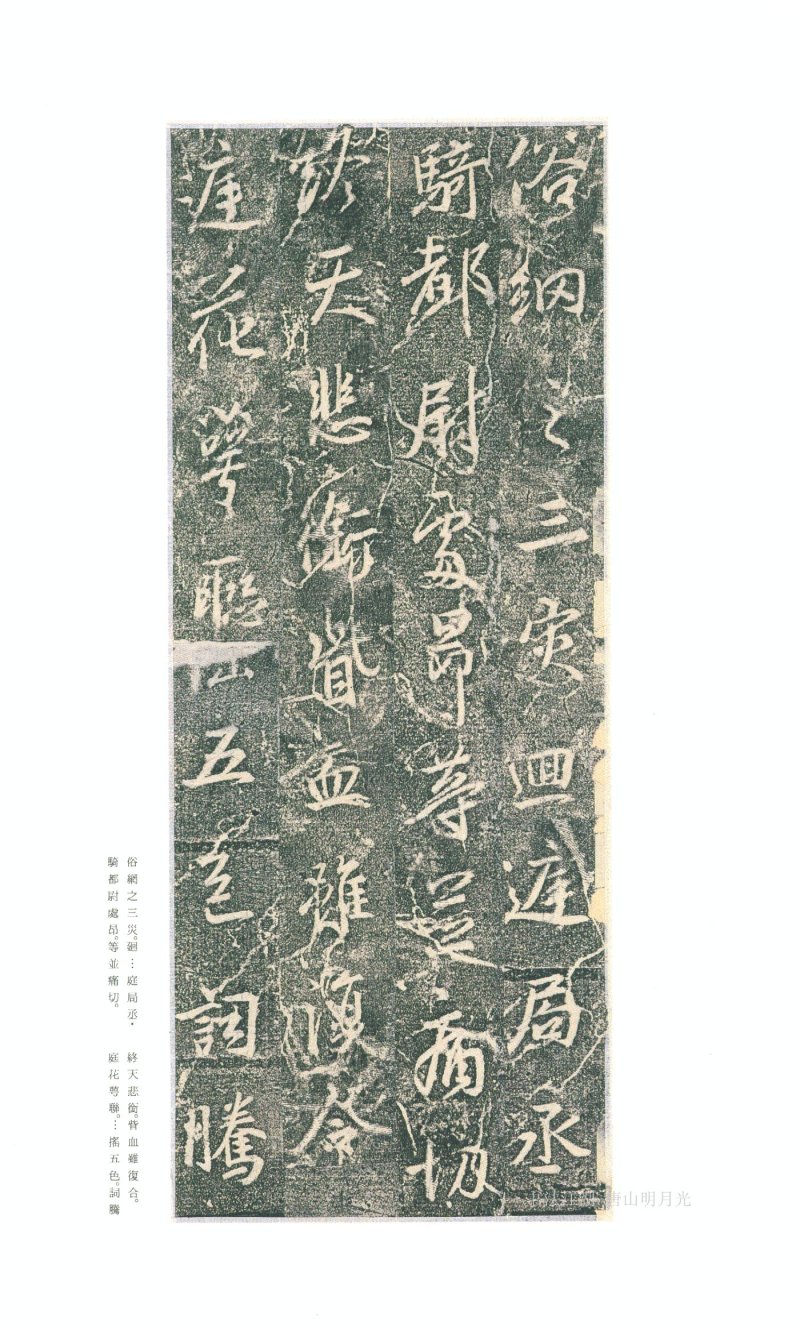 俗網之三災迴庭局丞
騎都尉處昂等並痛切
終天悲銜訾血雖復合
庭花萼聯五色詞騰
俗網之三災。廻…庭局丞・
騎都尉處昂。等並痛切。
終天悲銜。訾血雖復合。
庭花萼聯。…搖五色。詞騰
唐山明月光